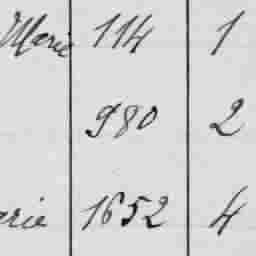 Marie 114 1
980 2
arie 1652 4